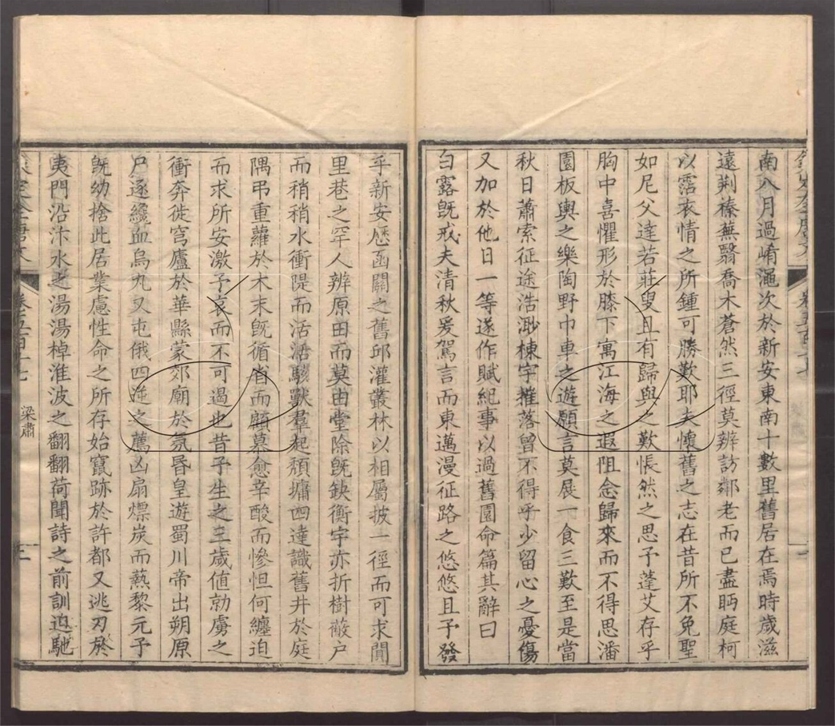 南八月過崤澠次於新安東南十數里舊居在焉時歲滋
遠荆榛蕪翳喬木蒼然三徑莫辨訪鄰老而已盡眄庭柯
以霑衣情之所鍾可勝歎耶夫懷舊之志在昔所不免聖
如尼父達若莊叟且有歸與之歎悵然之思予蓬艾存乎
胸中喜懼形於膝下寓江海之遐阻念歸來而不得思潘
園板輿之樂陶野巾車之遊願言莫展一食三歎至是當
秋日蕭索征途浩渺棟宇摧落曾不得乎少留心之憂傷
又加於他日一等遂作賦紀事以過舊園命篇其辭曰
白露既戒夫清秋爰駕言而東邁漫征路之悠悠且予發
乎新安歷函關之舊邱灌叢林以相屬披一徑而可求閴
里巷之罕人辨原田而莫由堂除既缺衡宇亦折樹蔽戶
而稍稍水衝隄而活活駭獸羣起頹墉四達識舊井於庭
隅弔重蘿於木末既循省而顧慕愈辛酸而慘怛何纏迫
而求所安激予哀而不可遏也昔予生之三歲値勍虜之
衝奔徙穹廬於華縣蒙郊廟於氛昏皇遊蜀川帝出朔原
尸逐纔血烏九又屯俄四逆之薦凶扇熛炭而熱黎元予
既幼捨此居業慮性命之所存始竄跡於許都又逃刃於
夷門沿汴水之湯湯棹淮波之翻翻荷聞詩之前訓迫馳
梁肅